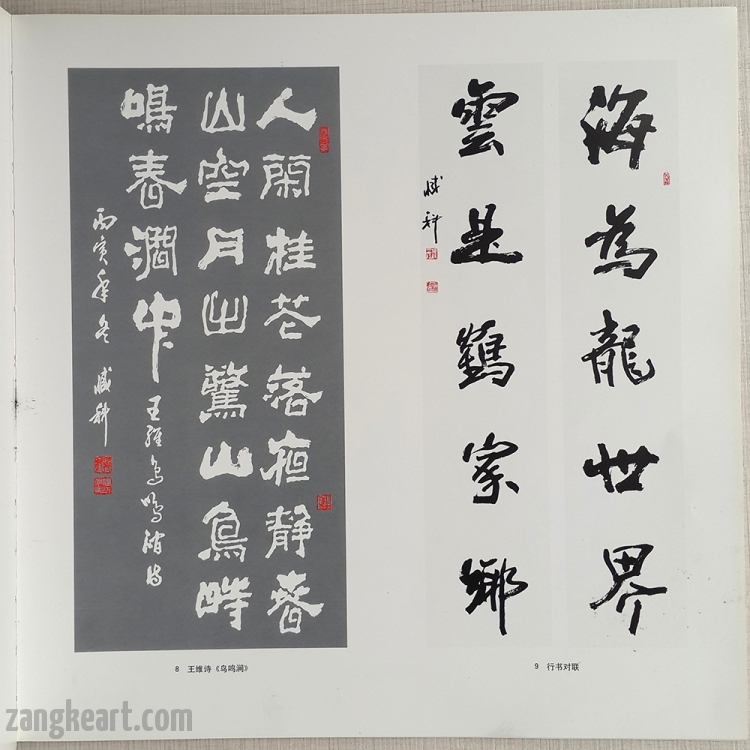 人閑桂花落夜静春
山空月出驚山鳥時
鳴春澗中 王維鳥鳴澗詩
丙寅年冬 臧科
8 王维诗《鸟鸣涧》
海為龍世界
雲是鶴家鄉
臧科
9 行书对联
zangkeart.com